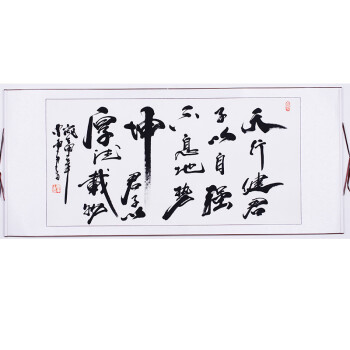 天行健君
子以自强
不息地势
坤君子以
厚德载物